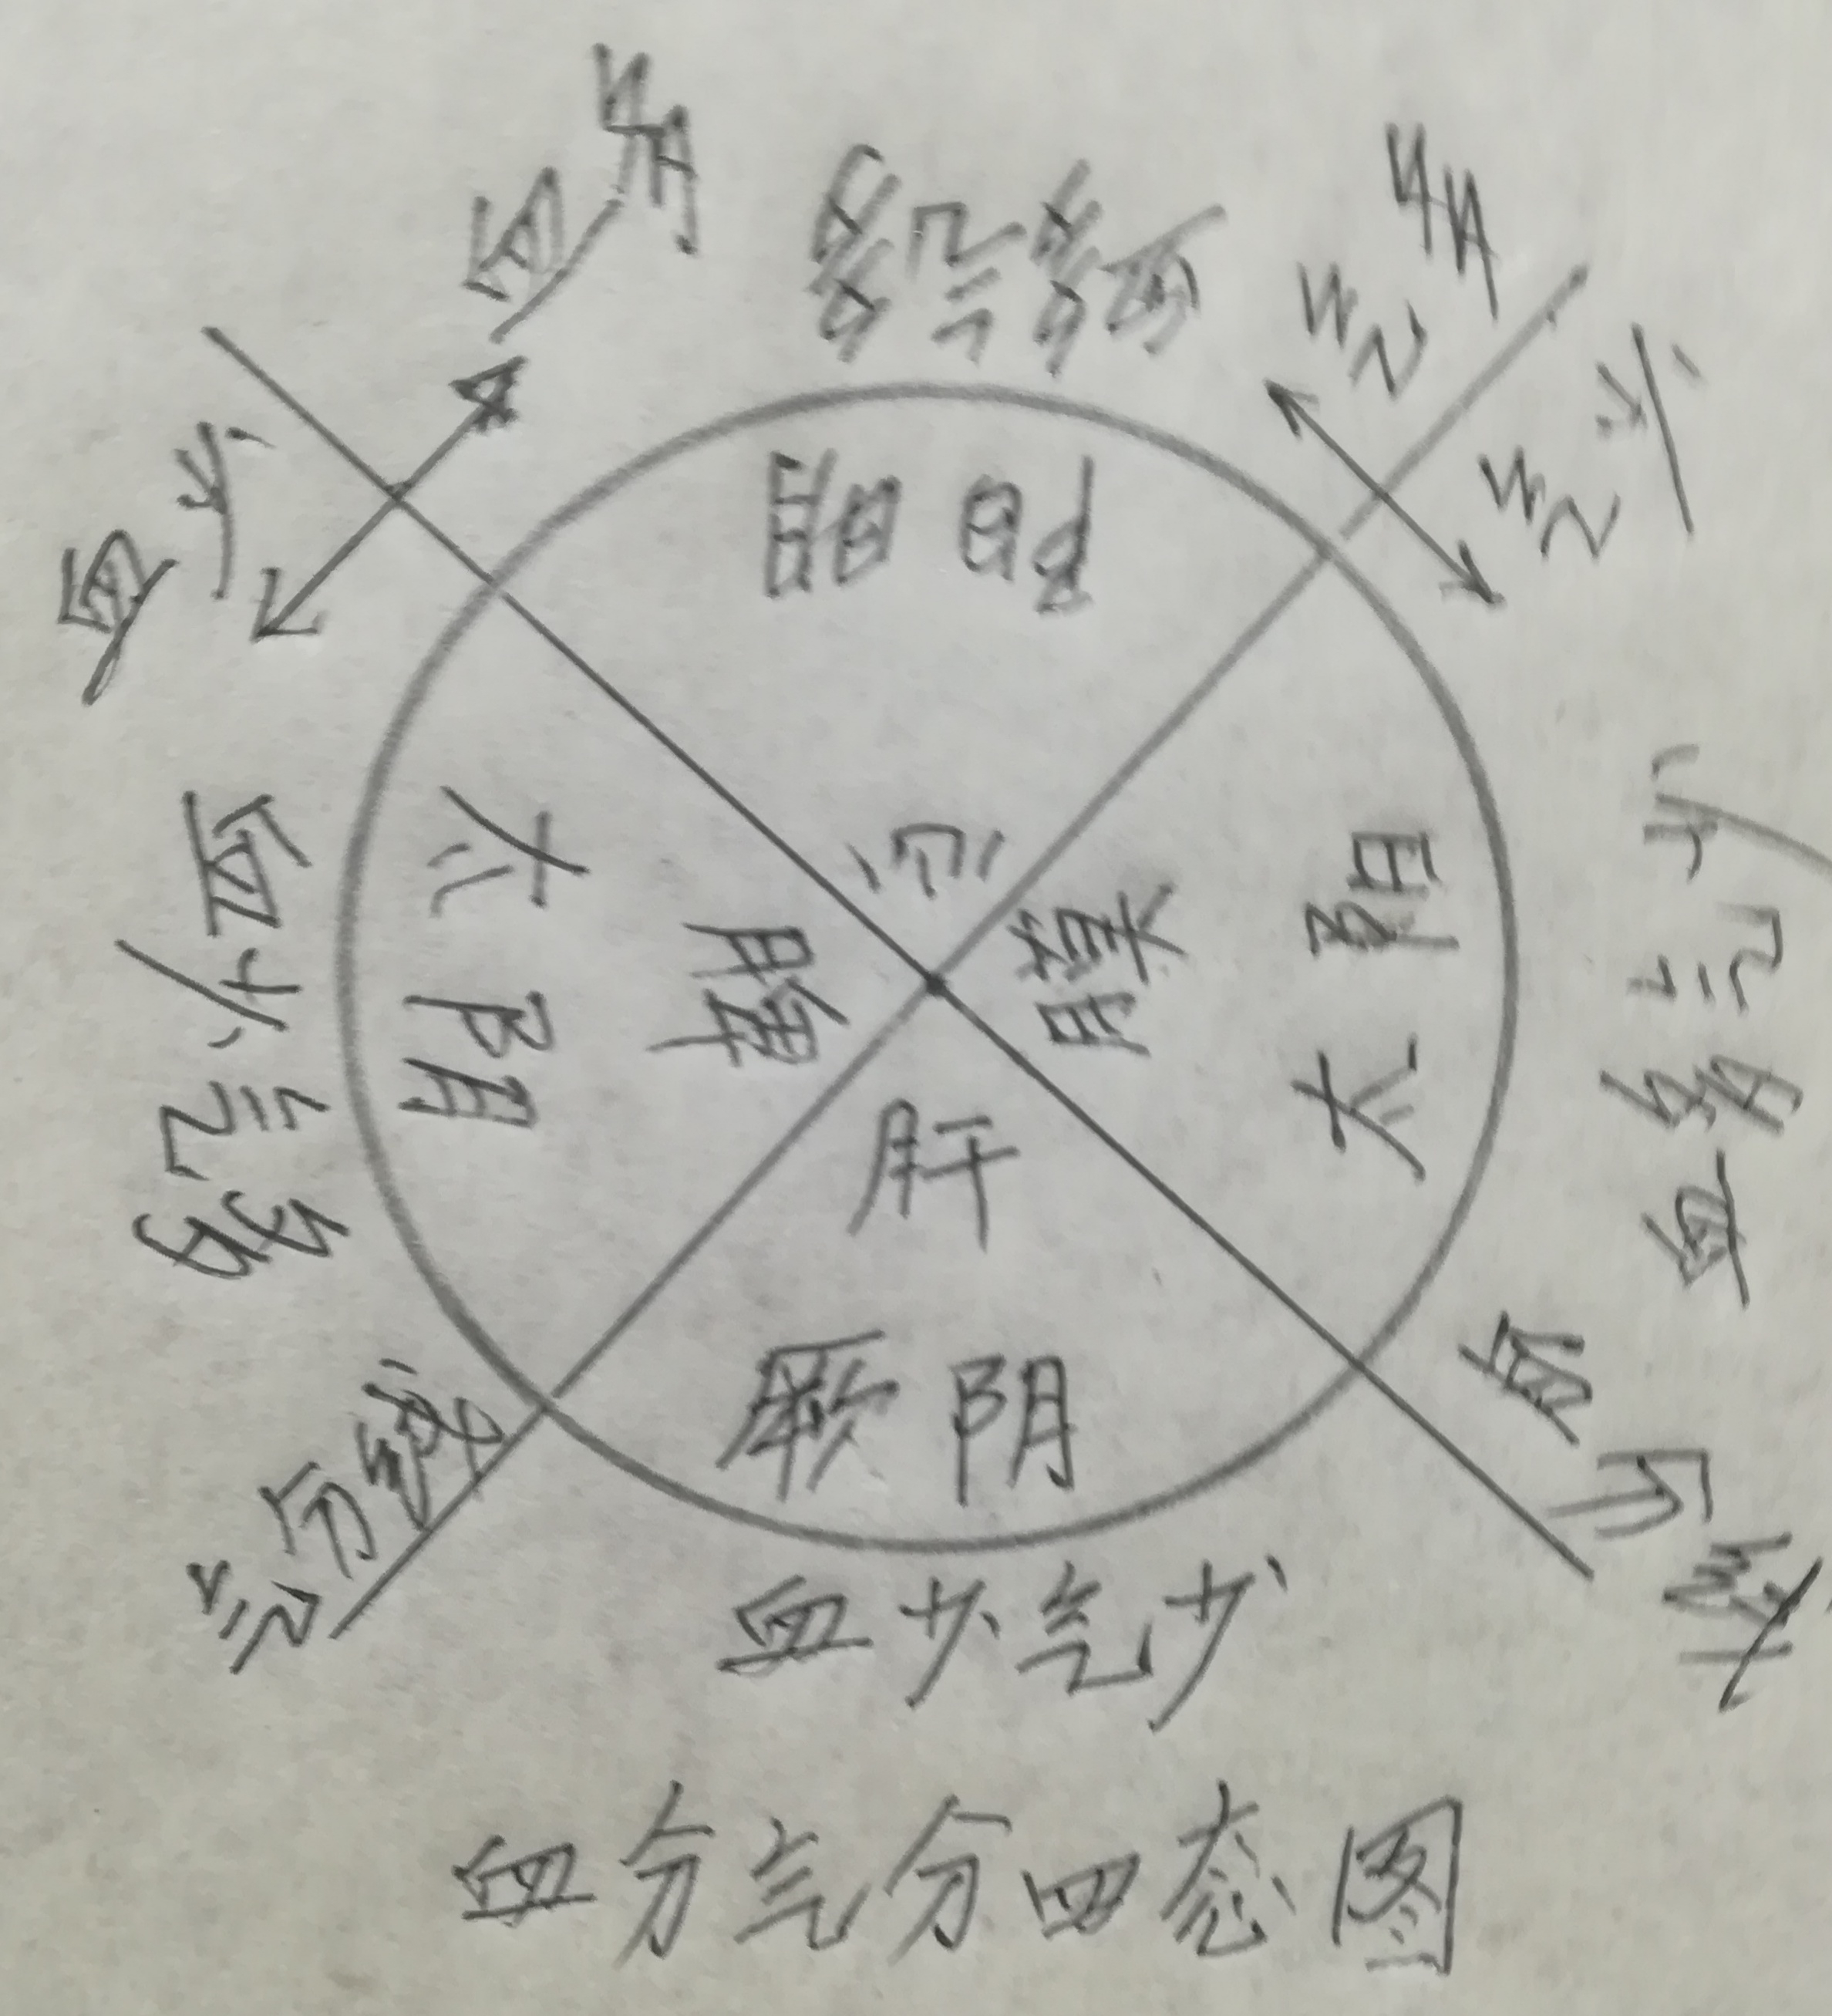 血多
血少
血多气多
气多
气少
阳明
心
血少气多
太阴
脾
太阳
血多气少
肝
厥阴
血少气少
气分线
血分线
血分气分四态图